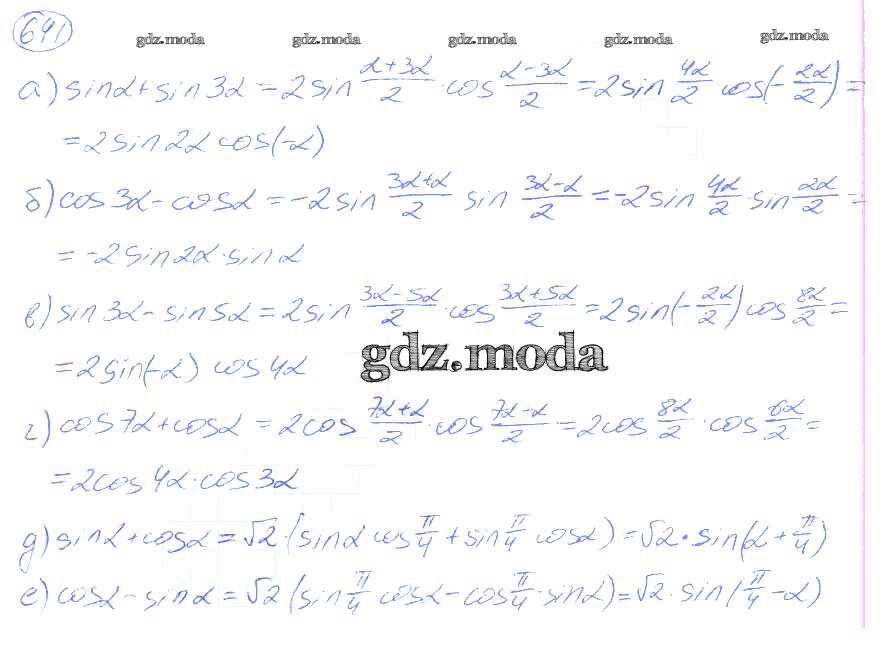 641
gdz.moda gdz.moda gdz.moda gdz.moda gdz.moda
а) sinα + sin 3α = 2 sin (α+3α)/2 · cos (α−3α)/2 = 2 sin 4α/2 cos(−2α/2) =
= 2 sin 2α cos(−α)
б) cos 3α − cosα = −2 sin (3α+α)/2 sin (3α−α)/2 = −2 sin 4α/2 · sin 2α/2 =
= −2 sin 2α · sin α
в) sin 3α − sin 5α = 2 sin (3α−5α)/2 · cos (3α+5α)/2 = 2 sin(−2α/2) cos 8α/2 =
= 2 sin(−α) cos 4α
gdz.moda
г) cos 7α + cosα = 2 cos (7α+α)/2 · cos (7α−α)/2 = 2 cos 8α/2 · cos 6α/2 =
= 2 cos 4α · cos 3α
д) sinα + cosα = √2 · (sinα cos π/4 + sin π/4 cosα) = √2 · sin(α + π/4)
е) cosα − sinα = √2 (sin π/4 cosα − cos π/4 · sinα) = √2 · sin(π/4 − α)